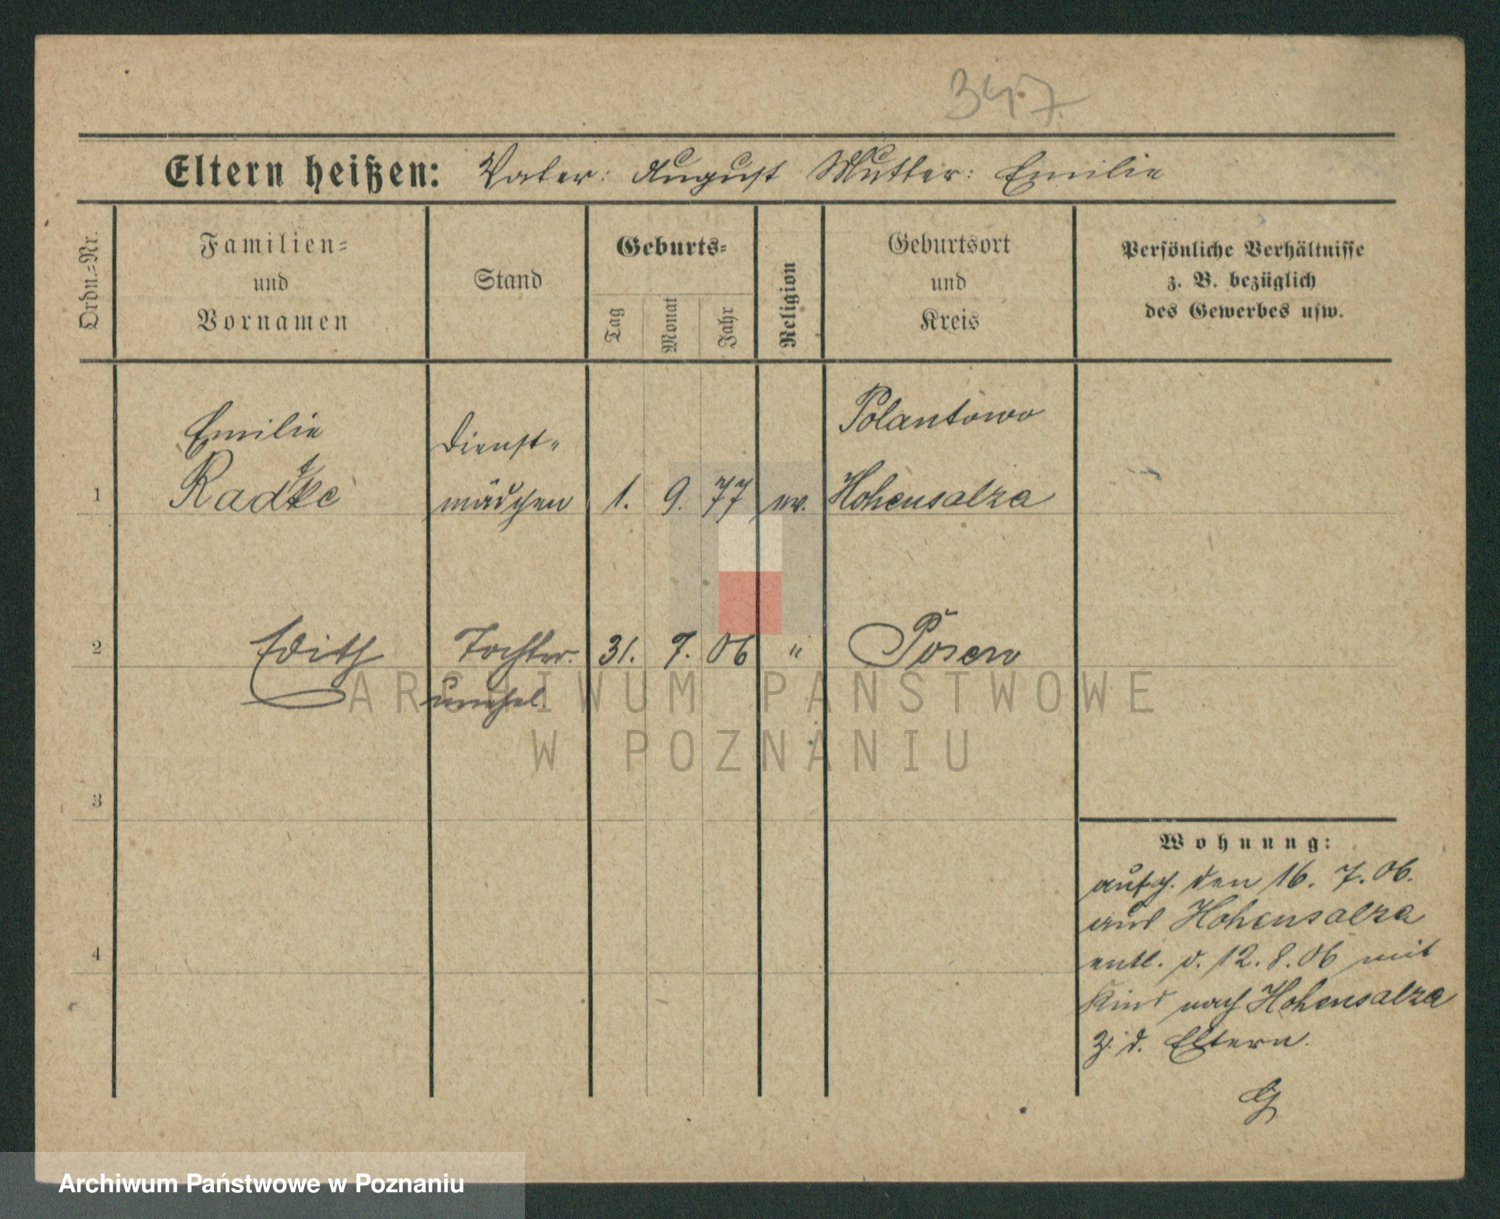 347.
Eltern heißen: Vater: August Mutter: Emilie
Ordn.=Nr.
Familien=
und
Vornamen
Stand
Geburts=
Tag
Monat
Jahr
Religion
Geburtsort
und
Kreis
Persönliche Verhältnisse
z. B. bezüglich
des Gewerbes usw.
Emilie Dienst= Polantowo
1 Radtke mädchen 1. 9. 77 ev. Hohensalza
2 Edith Tochter. 31. 7. 06 " Posen
unehel.
3
4
Wohnung:
aufg. den 16. 7. 06.
aus Hohensalza
entl. d. 12. 8. 06 mit
Kind nach Hohensalza
z. d. Eltern.
G
ARCHIWUM PAŃSTWOWE
W POZNANIU
Archiwum Państwowe w Poznaniu